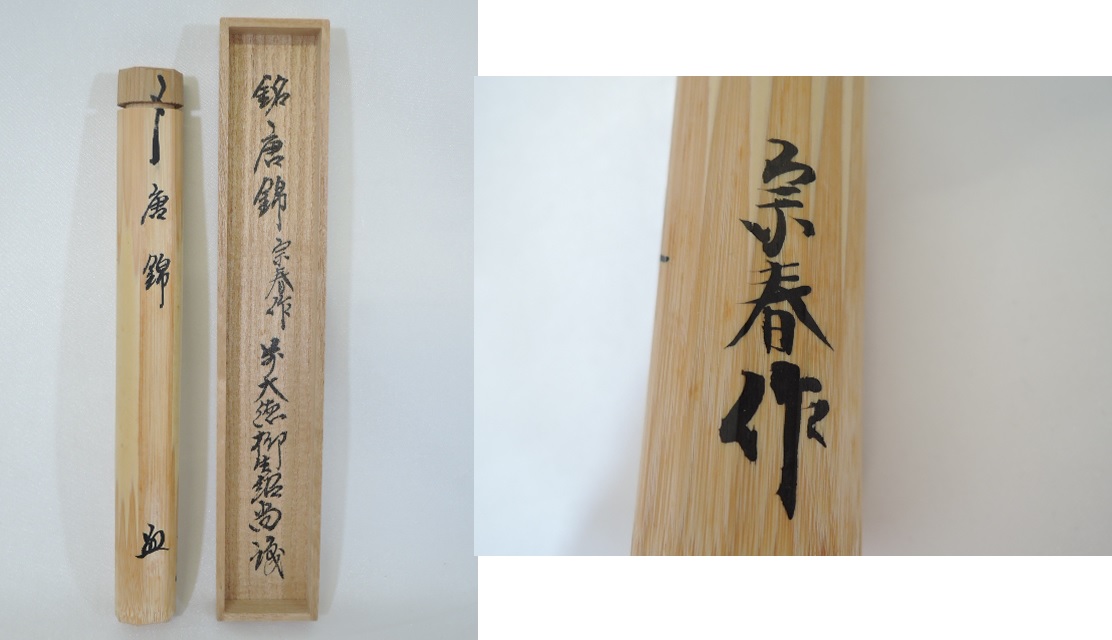 唐錦
銘唐錦宗春作前大徳柳生紹尚識
宗春作